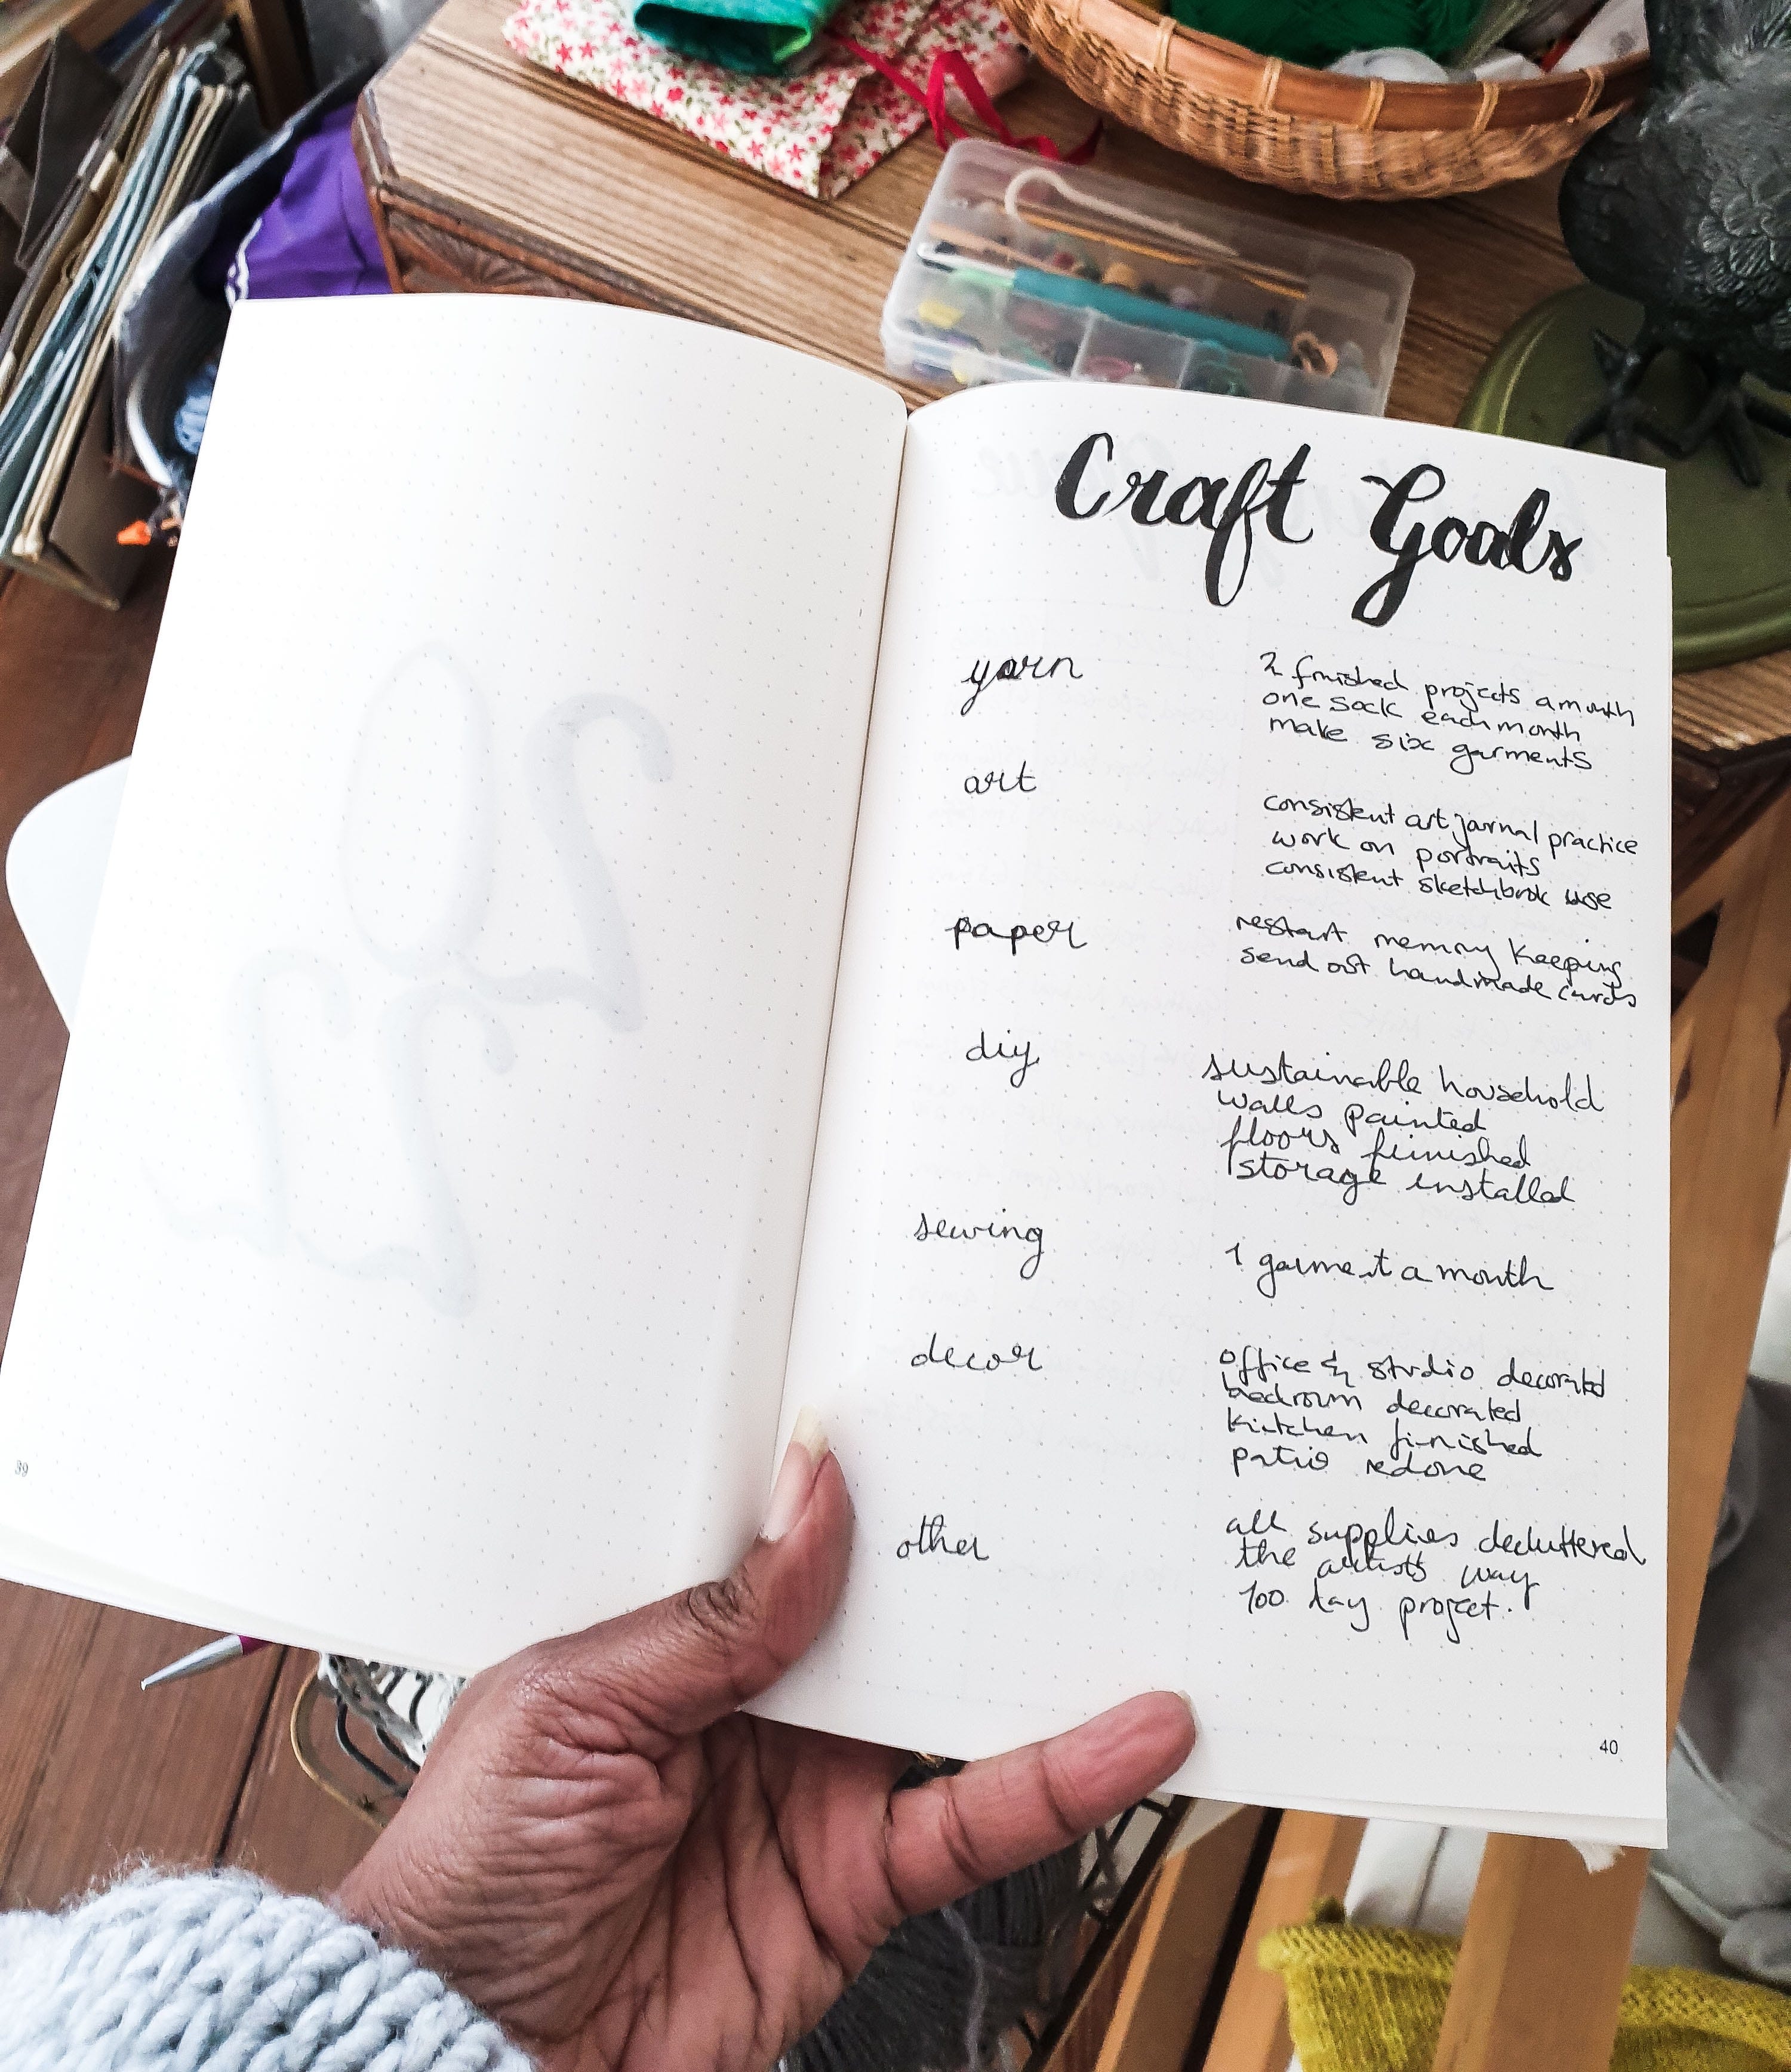 Craft Goals
yarn
2 finished projects a month
one sock each month
make six garments
art
consistent art journal practice
work on portraits
consistent sketchbook use
paper
restart memory keeping
send out handmade cards
diy
sustainable household
walls painted
floors finished
storage installed
sewing
1 garment a month
decor
office & studio decorated
bedroom decorated
kitchen finished
patio redone
other
all supplies decluttered
the artists way
100 day project.
39
40